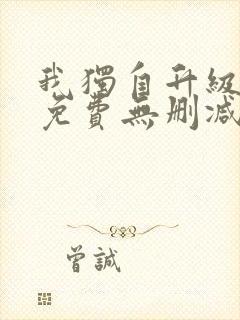 我獨自升級
免費無刪減
曾誠